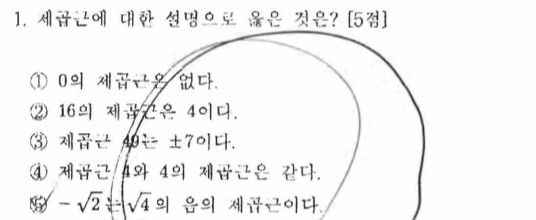 1. 제곱근에 대한 설명으로 옳은 것은? [5점]
① 0의 제곱근은 없다.
② 16의 제곱근은 4이다.
③ 제곱근 49는 ±7이다.
④ 제곱근 4와 4의 제곱근은 같다.
⑤ -√2는 √4의 음의 제곱근이다.